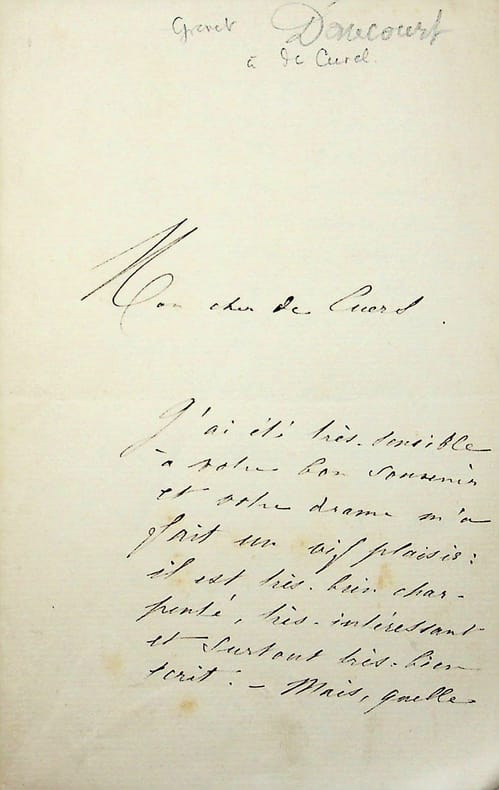 Grenet Dancourt
à de Curel.
Mon cher de Cuers.
J'ai été très-sensible
à votre bon souvenir
et votre drame m'a
fait un vif plaisir:
il est très-bien char-
penté, très-intéressant
et surtout très-bien
écrit. – Mais, quelle